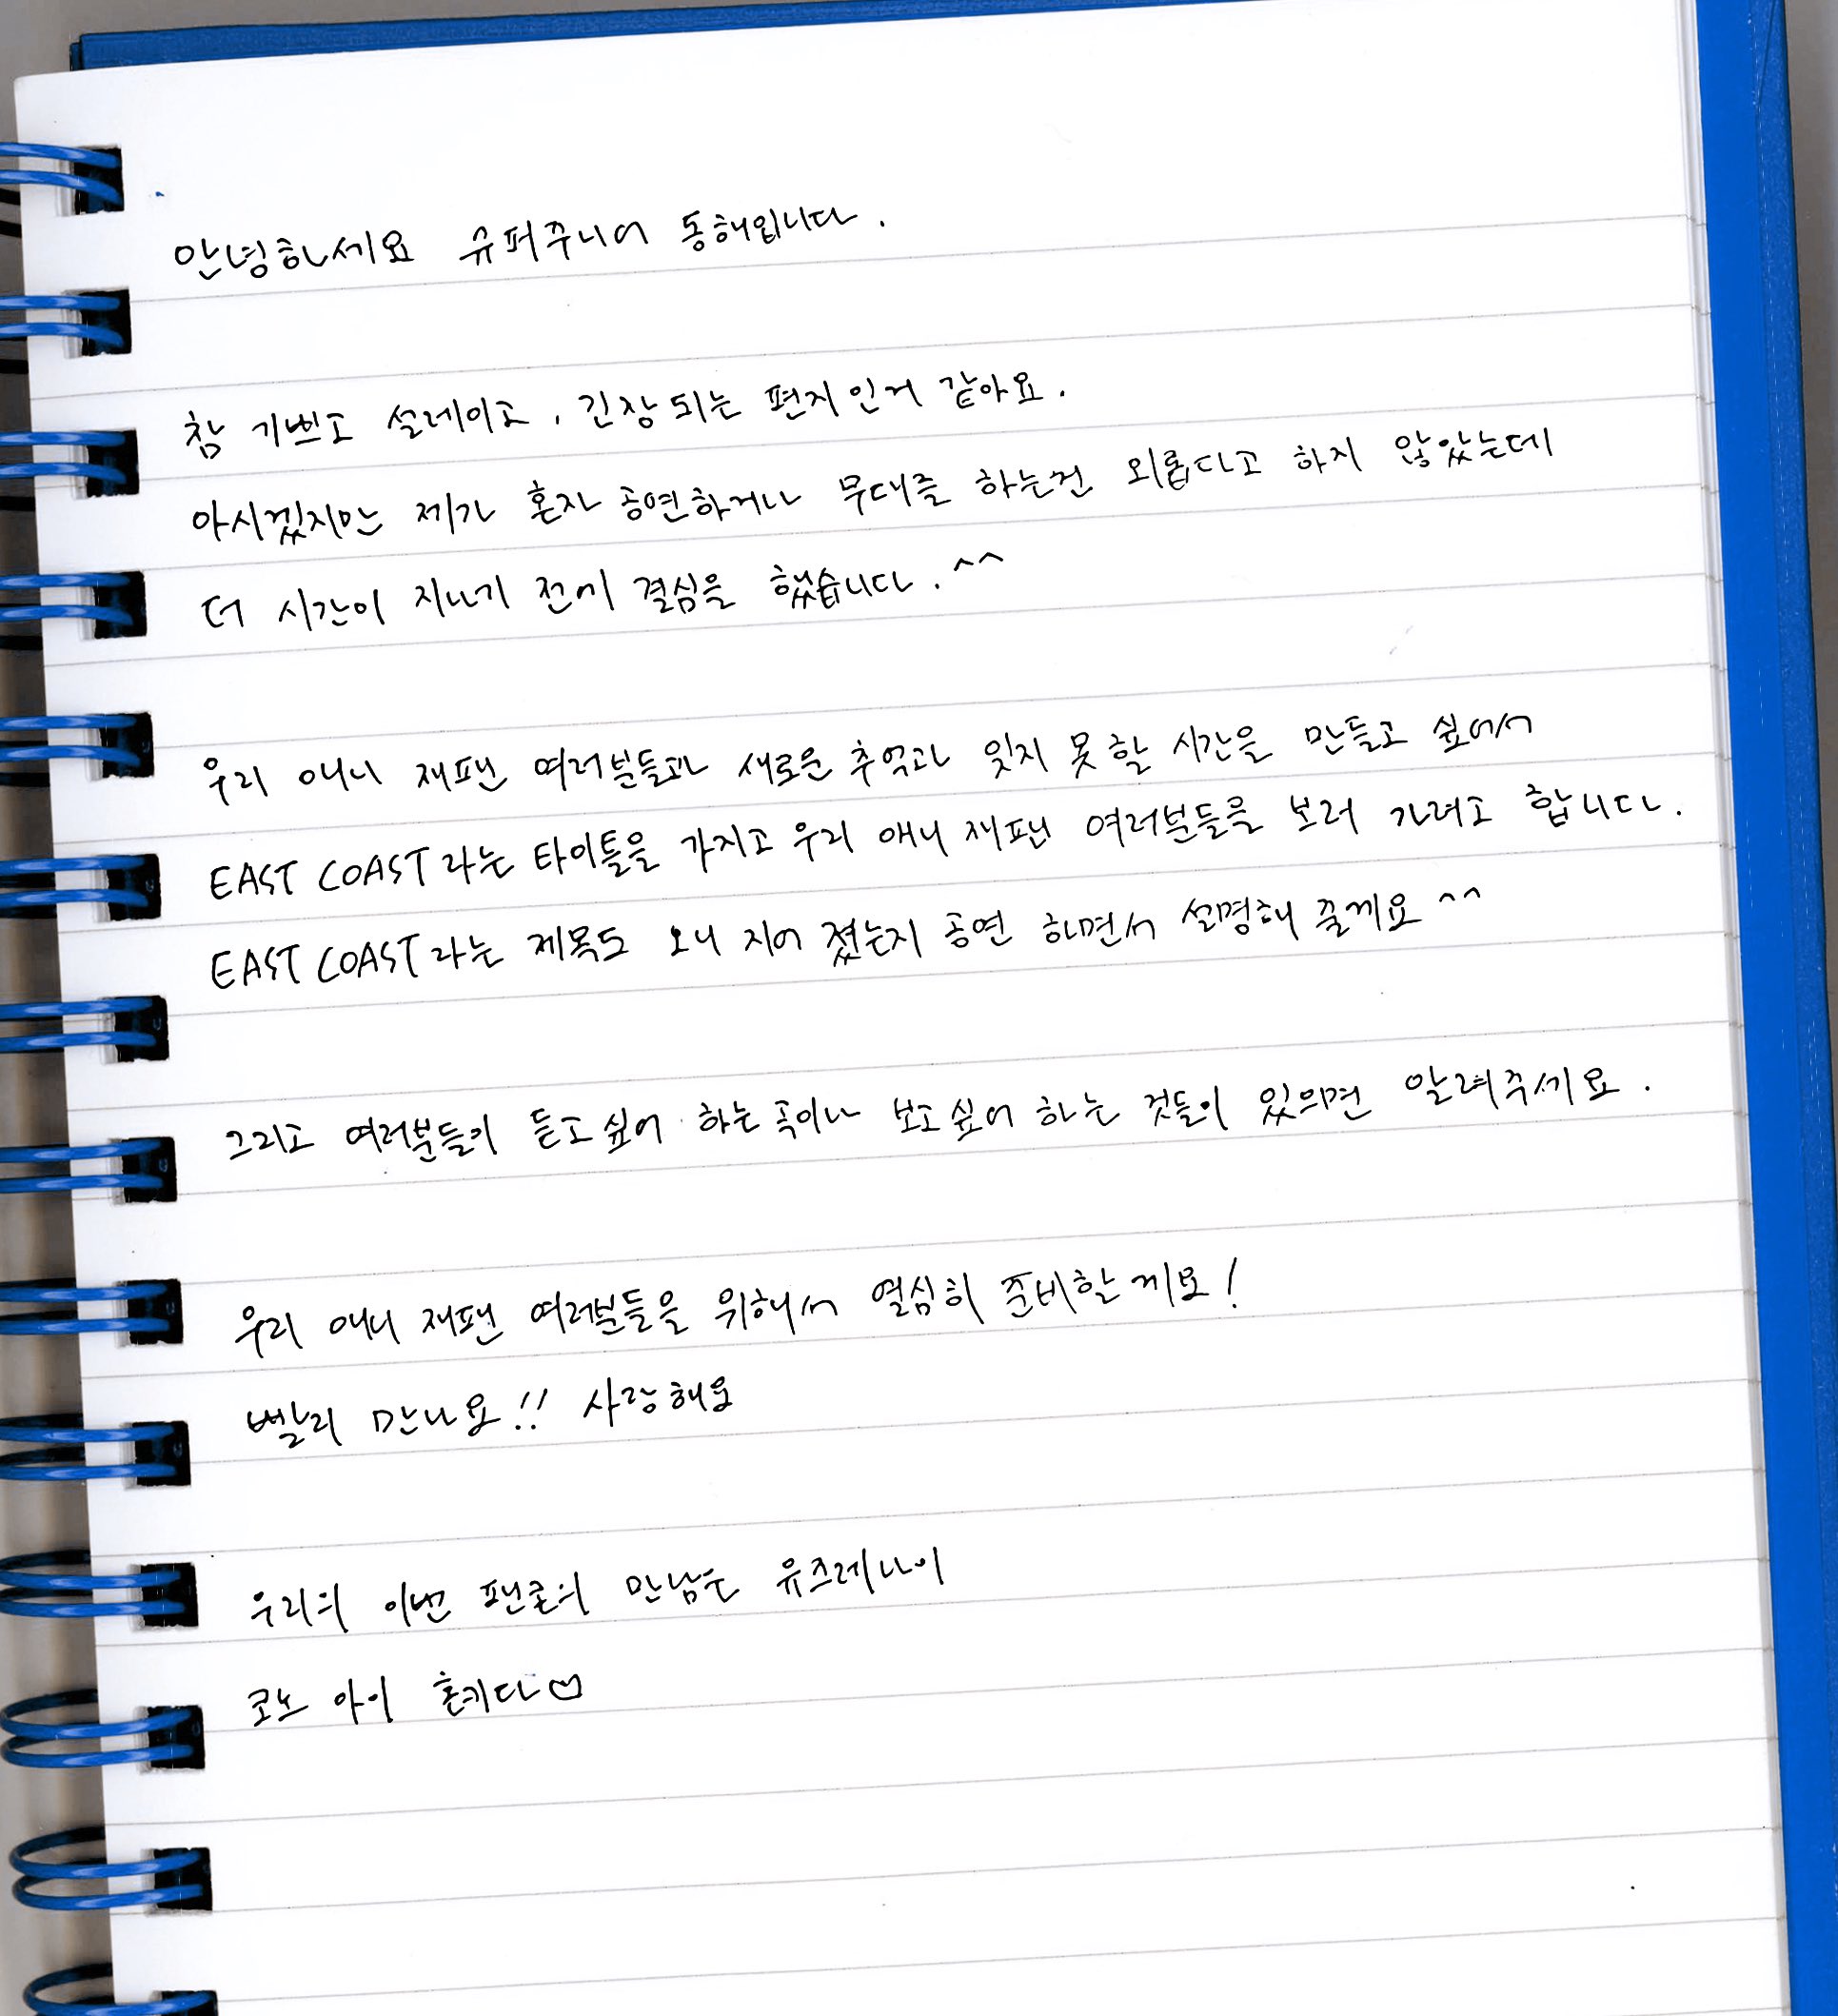 안녕하세요 슈퍼주니어 동해입니다.
참 기쁘고 설레이고, 긴장되는 편지인거 같아요.
아시겠지만 제가 혼자 공연하거나 무대를 하는건 외롭다고 하지 않았는데
더 시간이 지나기 전에 결심을 했습니다.^^
우리 애니 재팬 여러분들과 새로운 추억과 잊지 못할 시간을 만들고 싶어서
EAST COAST라는 타이틀을 가지고 우리 애니 재팬 여러분들을 보러 가려고 합니다.
EAST COAST라는 제목도 오니 지어 졌는지 공연 하면서 설명해 줄께요^^
그리고 여러분들이 듣고싶어 하는 곡이나 보고싶어 하는 것들이 있으면 알려주세요.
우리 애니 재팬 여러분들을 위해서 열심히 준비할께요!
빨리 만나요!! 사랑해요
우리의 이번 팬콘의 만남은 유즈레나이
코노 아이 혼키다♡